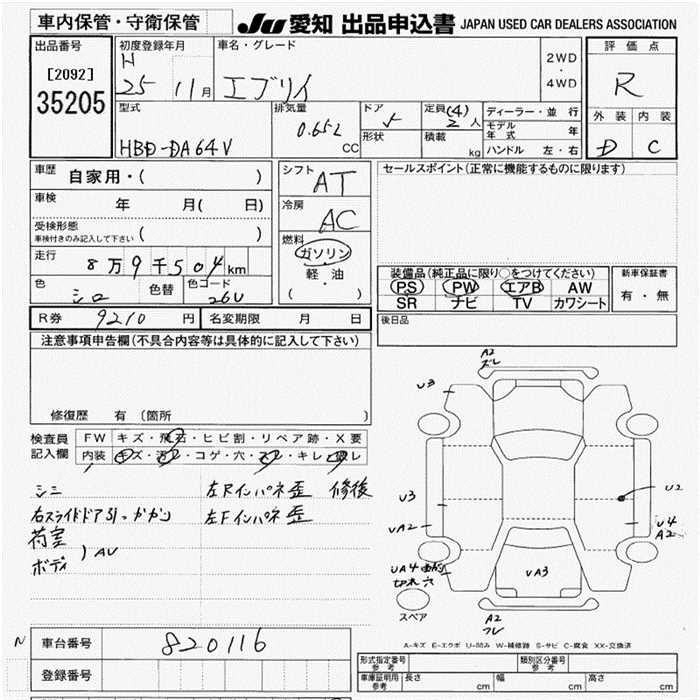 車内保管・守衛保管
JU 愛知 出品申込書 JAPAN USED CAR DEALERS ASSOCIATION
出品番号
[2092]
35205
初度登録年月
H
25 11月
車名・グレード
エブリイ
2WD
・
4WD
評価点
R
外装 内装
D C
型式
HBD-DA64V
排気量
0.652
CC
ドア
5
形状
定員(4)
2人
積載
kg
ディーラー・並行
モデル年式 年
ハンドル 左・右
車歴
自家用・( )
車検
年 月( 日)
受検形態
車検付きのみ記入して下さい ( )
走行
8万9千504km
色
シロ
色替
色コード
26U
シフト
AT
冷房
AC
燃料
ガソリン
軽・油
( )
セールスポイント(正常に機能するものに限ります)
装備品(純正品に限り○をつけてください)
PS PW エアB AW
SR ナビ TV カワシート
新車保証書
有・無
後日品
R券 9210円
名変期限 月 日
注意事項申告欄(不具合内容等は具体的に記入して下さい)
修復歴 有 (箇所 )
検査員
記入欄
FW キズ・飛石・ヒビ割・リペア跡・X要
内装 キズ・汚レ・コゲ・穴・スレ・キレ・
シミ
右スライドドア
荷室
ボディ
) AU
左Rインパネ歪 修後
左Fインパネ歪
A2
ズレ
U3
U3
UA2
UA4
切れ 穴
UA3
U2
U4
A2
A2
スペア
A-キズ E-エクボ U-凹み W-補修跡 S-サビ C-腐食 XX-交換済
N
車台番号
820116
登録番号
形式指定番号
参考
類別区分番号
参考
車庫証明用
参考
長さ cm
幅 cm
高さ cm